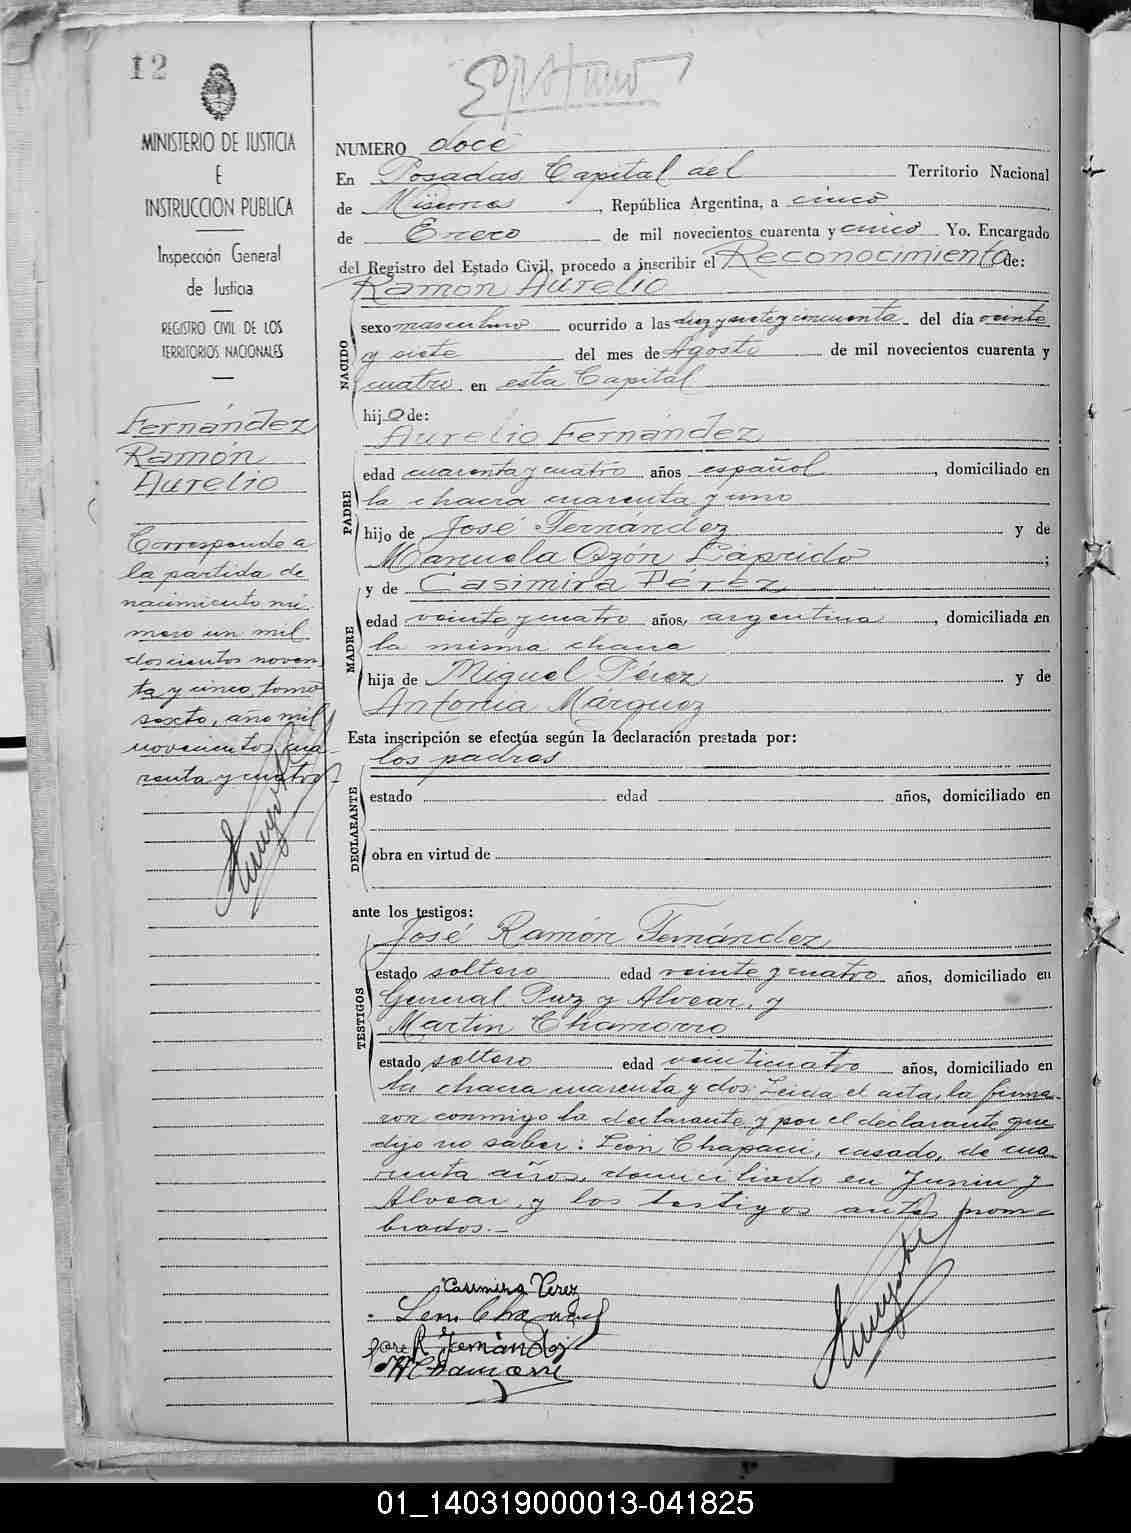 12
MINISTERIO DE JUSTICIA
E
INSTRUCCION PUBLICA
Inspección General
de Justicia
REGISTRO CIVIL DE LOS
TERRITORIOS NACIONALES
Fernández
Ramón
Aurelio
Corresponde a
la partida de
nacimiento nú-
mero un mil
doscientos noven
ta y cinco, tomo
sexto, año mil
novecientos cua-
renta y cuatro-
NUMERO doce
En Posadas Capital del Territorio Nacional
de Misiones, República Argentina, a cinco
de Enero de mil novecientos cuarenta y cinco Yo. Encargado
del Registro del Estado Civil, procedo a inscribir el Reconocimiento de:
Ramón Aurelio
NACIDO
sexo masculino ocurrido a las diez y siete y cincuenta del día veinte
y siete del mes de Agosto de mil novecientos cuarenta y
cuatro en esta Capital
hijo de:
Aurelio Fernández
PADRE
edad cuarenta y cuatro años español, domiciliado en
la chacra cuarenta y uno
hijo de José Fernández y de
Manuela Ozón Láprido;
y de Casimira Pérez
MADRE
edad veinte y cuatro años, argentina, domiciliada en
la misma chacra
hija de Miguel Pérez y de
Antonia Márquez
Esta inscripción se efectúa según la declaración prestada por:
los padres
DECLARANTE
estado edad años, domiciliado en
obra en virtud de
ante los testigos:
José Ramón Fernández
TESTIGOS
estado soltero edad veinte y cuatro años, domiciliado en
General Paz y Alvear, y
Martin Chamorro
estado soltero edad veinticuatro años, domiciliado en
la chacra cuarenta y dos. Leida el acta, la firma-
ron conmigo la declarante y por el declarante que
dijo no saber: León Chapaui, casado, de cua-
renta años, domiciliado en Junin y
Alvear, y los testigos antes nom-
brados.-
Casimira Perez
José R Fernández
M Chamorro
01_140319000013-041825